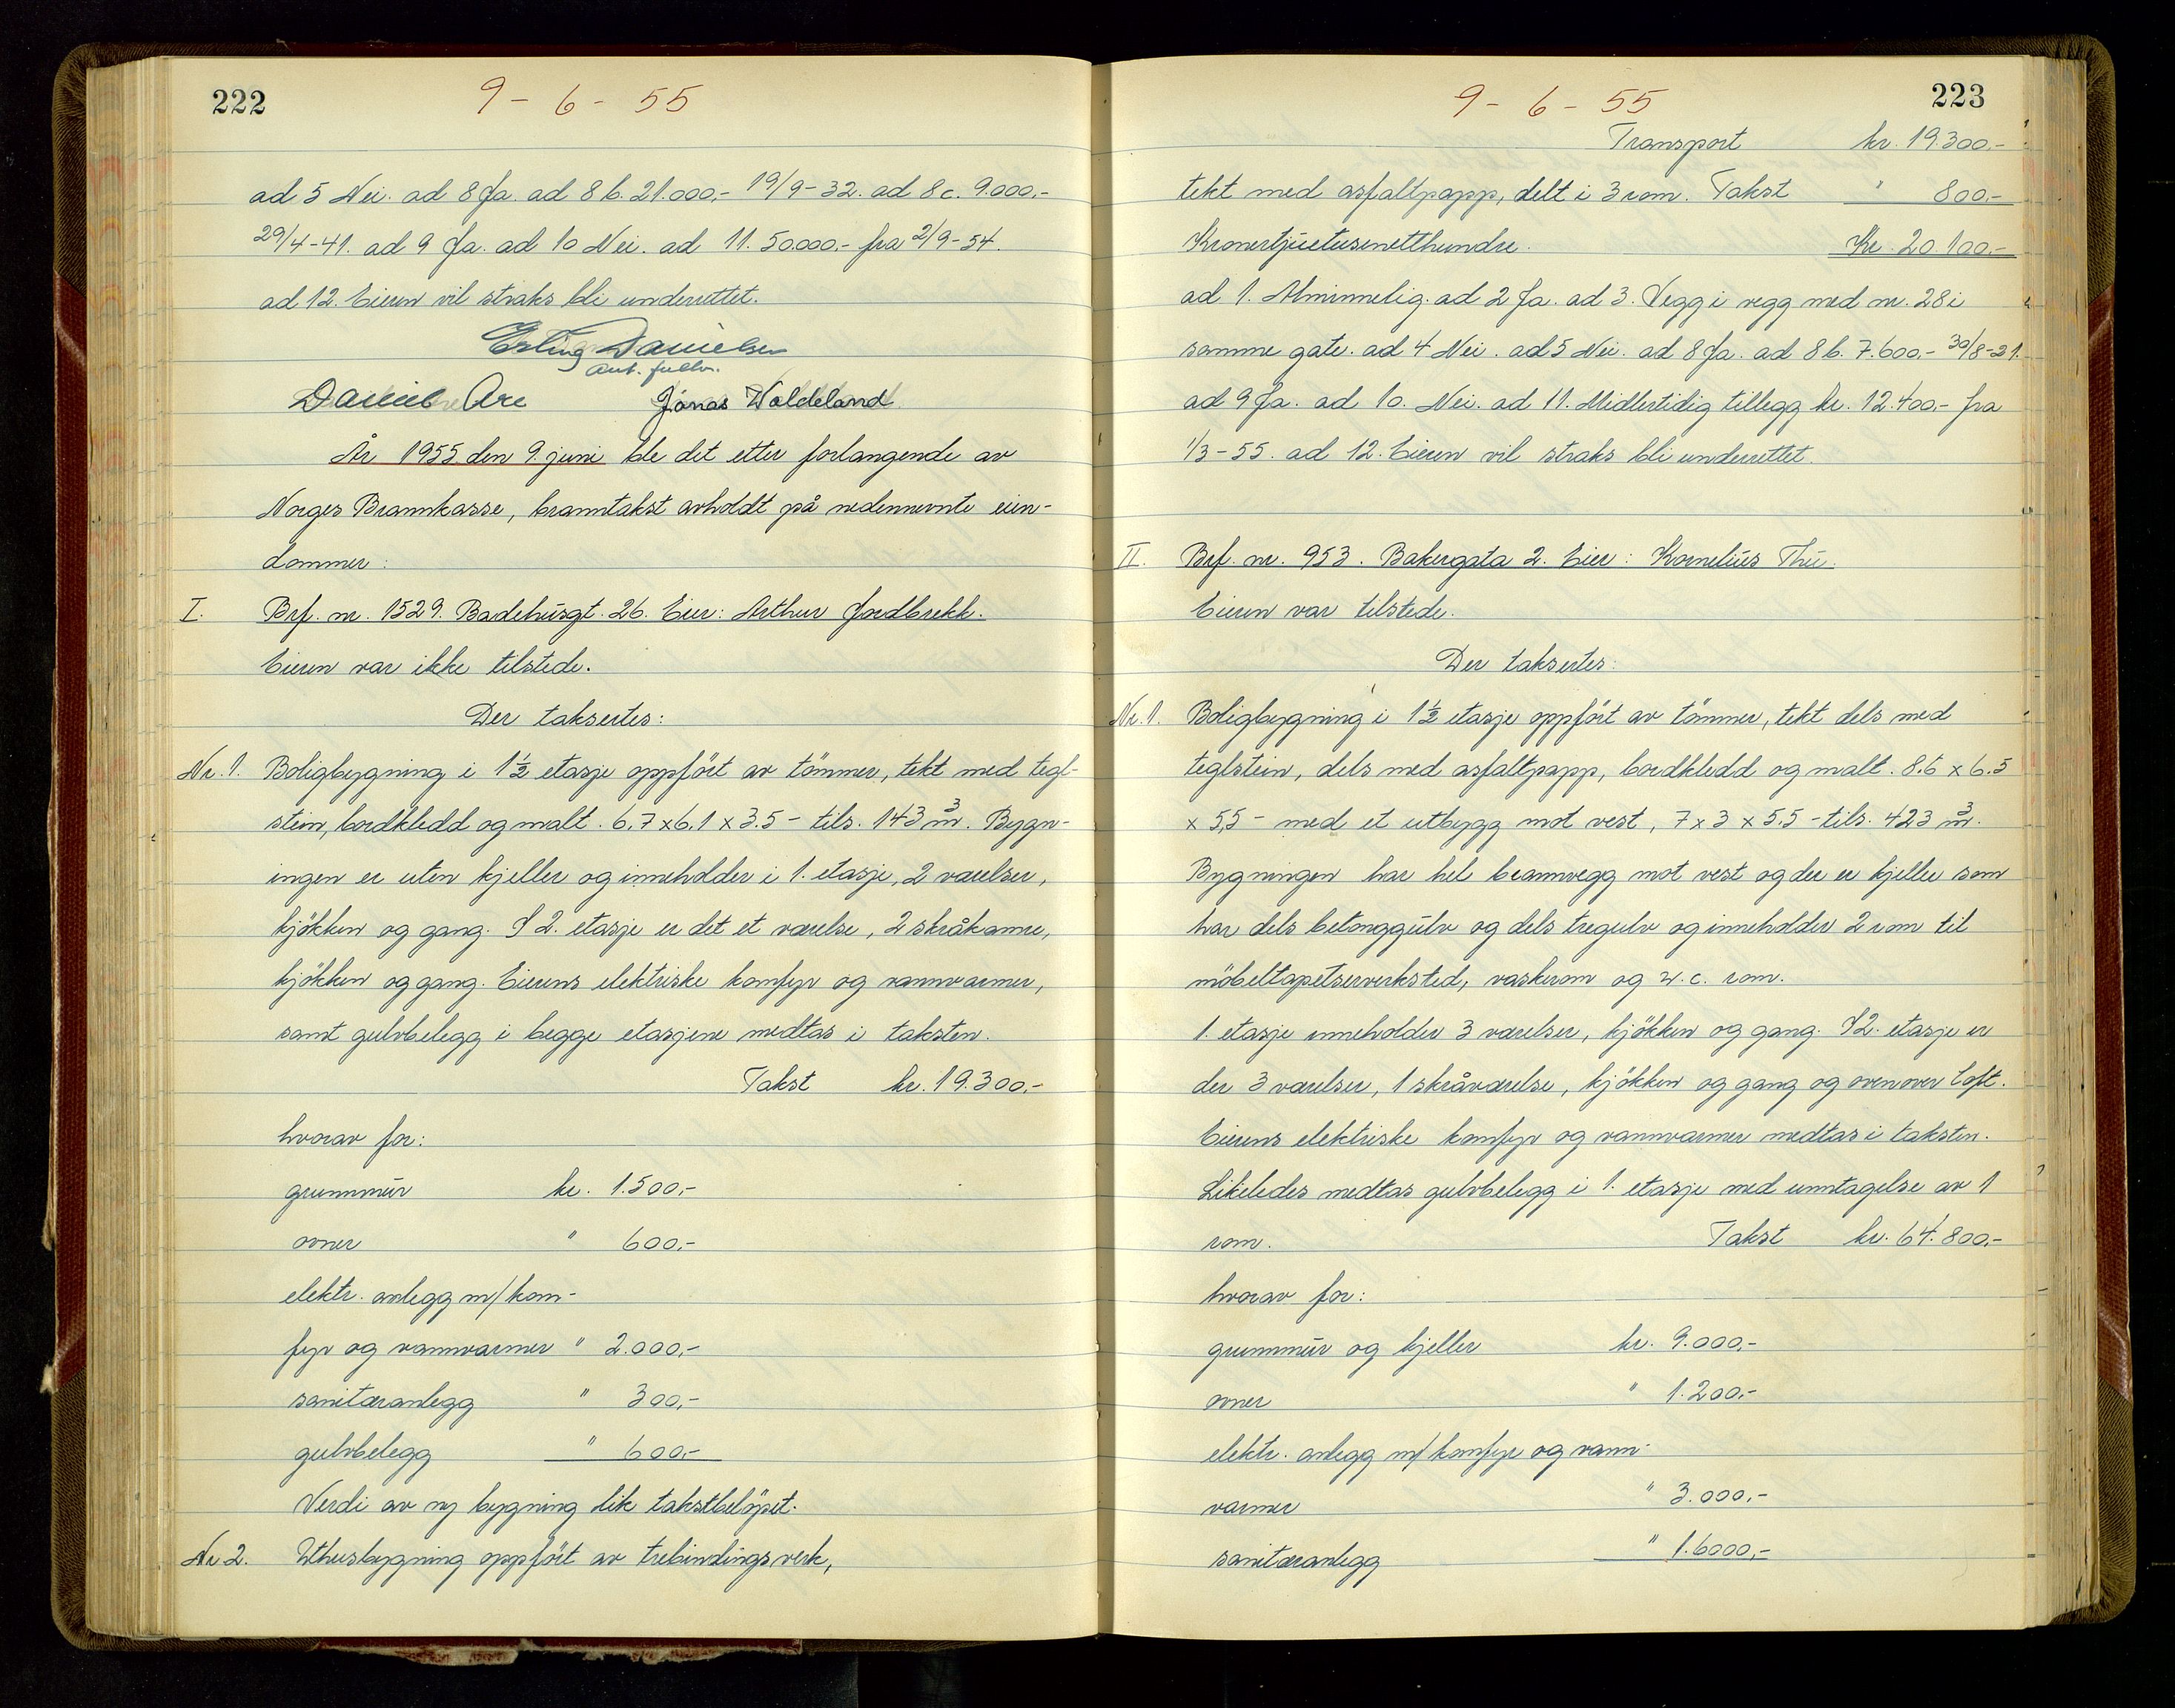 222
9 - 6 - 55
ad 5 Nei. ad 8 Ja. ad 8 b. 21.000,- 19/9-32. ad 8 c. 9.000,-
29/4-41. ad 9 Ja. ad 10 Nei. ad 11. 50000.- fra 2/9-54.
ad 12. Eieren vil straks bli underrettet.
Erling Danielsen
aut. fullm.
Daniel Are Jonas Waldeland
År 1955. den 9. juni ble det etter forlangende av
Norges Brannkasse, branntakst avholdt på nedennevnte eien-
dommer:
I. Brf. nr. 1529. Badehusgt. 26. Eier: Arthur Jordbrekk.
Eieren var ikke tilstede.
Der taksertes:
Nr. 1. Boligbygning i 1½ etasje oppført av tömmer, tekt med tegl-
stein, bordkledd og malt. 6.7 x 6.1 x 3.5 - tils. 143 m³. Bygn-
ingen er uten kjeller og inneholder i 1. etasje, 2 værelser,
kjökken og gang. I 2. etasje er det et værelse, 2 skråkamre,
kjökken og gang. Eierens elektriske komfyr og vannvarmer,
samt gulvbelegg i begge etasjene medtas i taksten.
Takst kr. 19.300,-
hvorav for:
grunnmur kr. 1.500,-
ovner " 600,-
elektr. anlegg m/kom-
fyr og vannvarmer " 2.000,-
sanitæranlegg " 300,-
gulvbelegg " 600,-
Verdi av ny bygning lik takstbelöpet.
Nr 2. Uthusbygning oppfört av trebindingsverk,
223
9 - 6 - 55
Transport kr. 19.300,-
tekt med asfaltpapp, delt i 3 rom. Takst " 800,-
Kronertjuetusenetthundre. Kr. 20.100,-
ad 1. Alminnelig. ad 2 Ja. ad 3. Vegg i vegg med nr. 28 i
samme gate. ad 4 Nei. ad 5 Nei. ad 8 Ja. ad 8 b. 7.600,- 30/8-21.
ad 9 Ja. ad 10. Nei. ad 11. Midlertidig tillegg kr. 12.400,- fra
1/3-55. ad 12. Eieren vil straks bli underrettet.
II. Brf. nr. 953. Bakergata 2. Eier: Kornelius Thu.
Eieren var tilstede.
Der taksertes:
Nr. 1. Boligbygning i 1½ etasje oppfört av tömmer, tekt dels med
teglstein, dels med asfaltpapp, bordkledd og malt. 8.6 x 6.5
x 5,5 - med et utbygg mot vest, 7 x 3 x 5.5 - tils. 423 m³.
Bygningen har hel brannvegg mot vest og der er kjeller som
har dels betonggulv og dels tregulv og inneholder 2 rom til
möbeltapetserverksted, vaskerom og w.c. rom.
1. etasje inneholder 3 værelser, kjökken og gang. I 2. etasje er
der 3 værelser, 1 skråværelse, kjökken og gang og ovenover loft.
Eierens elektriske komfyr og vannvarmer medtas i taksten.
Likeledes medtas gulvbelegg i 1. etasje med unntagelse av 1
rom. Takst kr. 64.800,-
hvorav for:
grunnmur og kjeller kr. 9.000,-
ovner " 1.200,-
elektr. anlegg m/komfyr og vann-
varmer " 3.000,-
sanitæranlegg " 1.6000,-